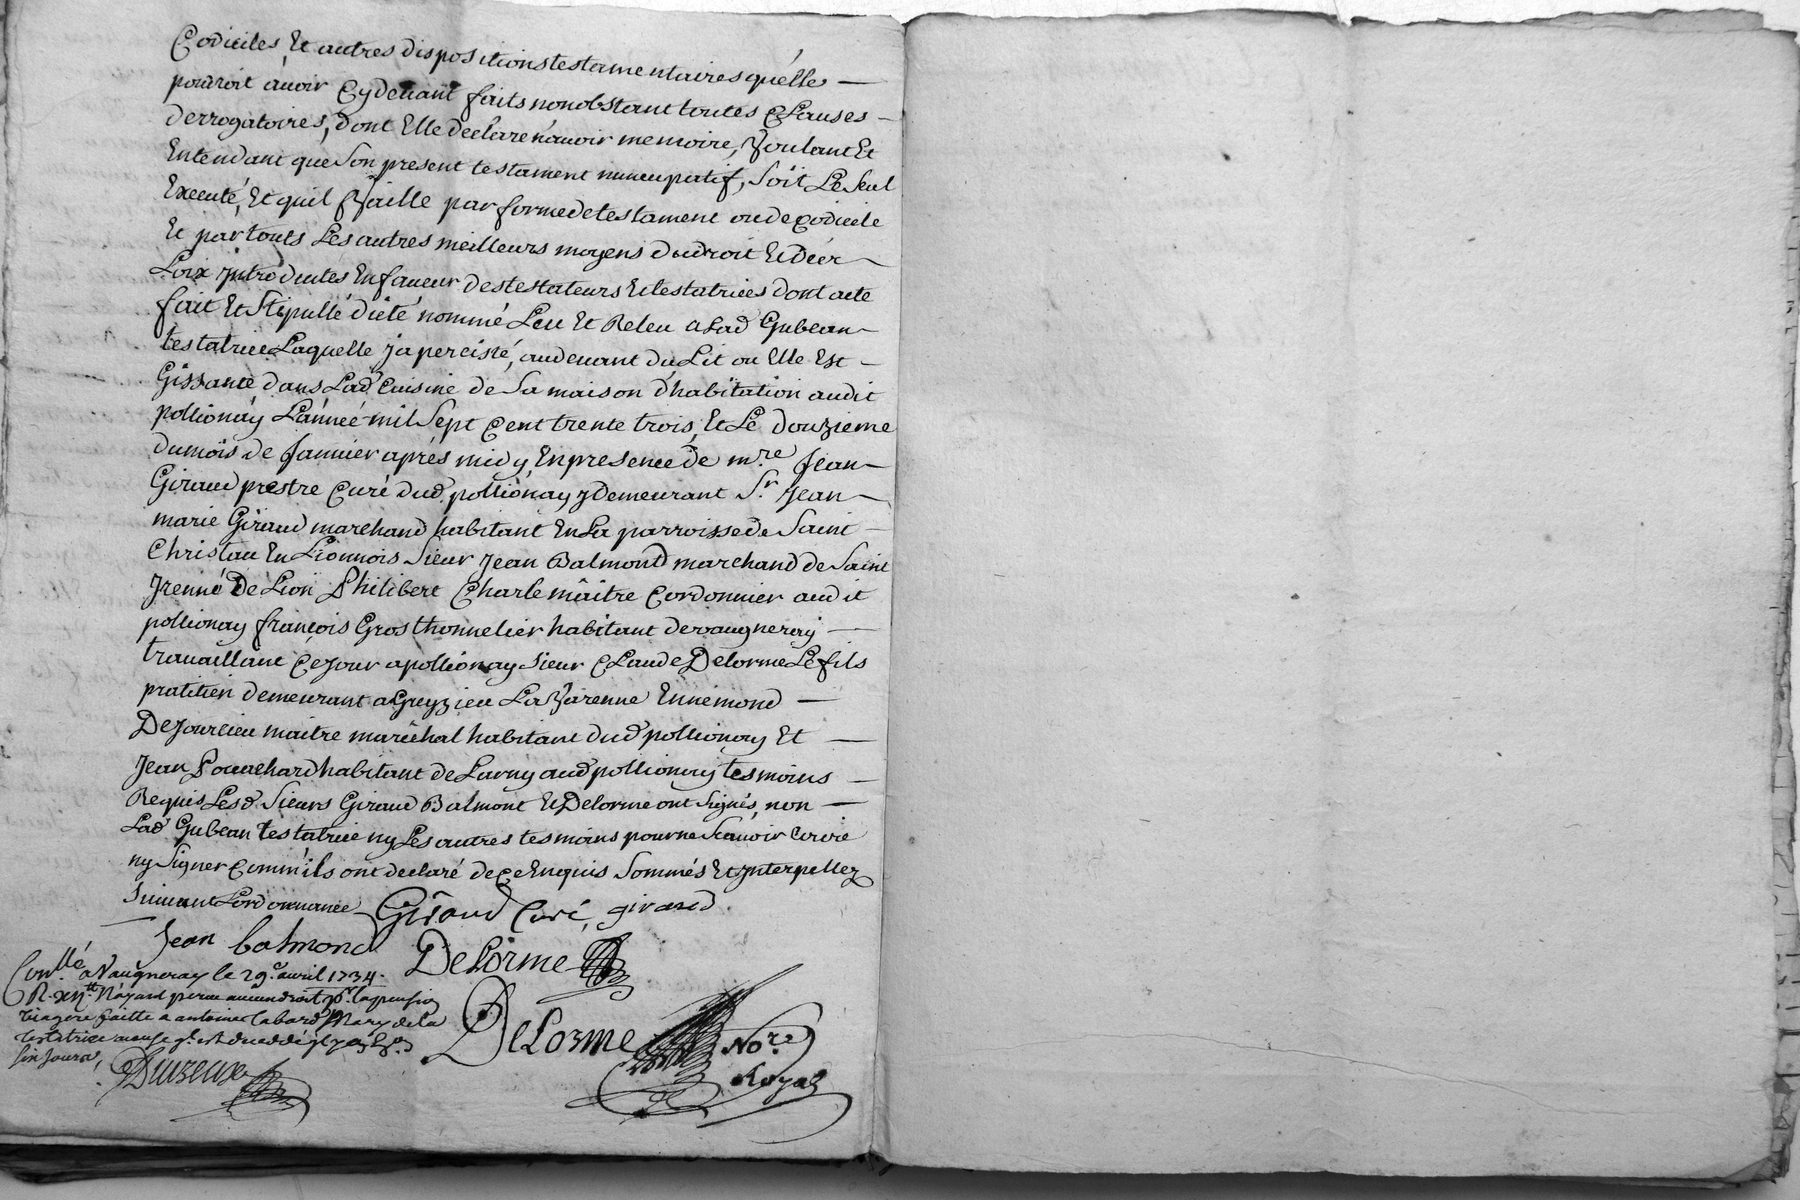 Codiciles Et autres dispositions testamentaires qu'elle
pouroit avoir Cydevant faits nonobstant toutes Clauses
derrogatoires, dont Elle declare n'avoir memoire, Voulant Et
Entendant que Son present testament nuncupatif, Soit Le Seul
Executé, Et quil Vaille par forme de testament ou de Codicile
Et par touts Les autres meilleurs moyens du droit Et des
Loix Introduites En faveur des testateurs Et testatrices dont acte
fait Et Stipullé dicté nommé Leu Et Releu a Lad Gubean
testatrice Laquelle ja percisté, au devant du Lit ou Elle Est
Gissante dans Lad Cuisine de Sa maison d'habitation audit
pollionay L'année mil Sept Cent trente trois, Et Le douzieme
du mois de Janvier aprés midy, En presence de mre Jean
Giraud prestre Curé dud. pollionay y demeurant Sr Jean
marie Giraud marchand habitant En La parroisse de Saint
Christau En Lionnois Sieur Jean Balmond marchand de Saint
Irenné De Lion Philibert Charle mâitre Cordonnier audit
pollionay françois Gros thonnelier habitant de vaugneray
travaillant Ce Jour a pollionay Sieur Claude Delorme Le fils
pratitien demeurant a Greyzieu La Varenne Ennemond
DeJourcieu maitre maréchal habitant dud pollionay Et
Jean Pouachard habitant de Larny aud pollionay tesmoins
Requis Lesd. Sieurs Giraud Balmont Et Delorme ont Signés, non
Lad Gubean testatrice ny Les autres tesmoins pour ne Scavoir Ecrire
ny Signer Comm'ils ont declaré de Ce Enquis Sommés Et Interpellez
Suivant Lordonnance Giraud Curé, giraud
Jean balmond Delorme
Conllé a Vaugneray le 29e avril 1734.
R. xiitt N'ayant perceu aucun droit pr. la pension
viagere faitte a antoine Cabard Mary de la
testatrice
DeLorme Nore
Royal